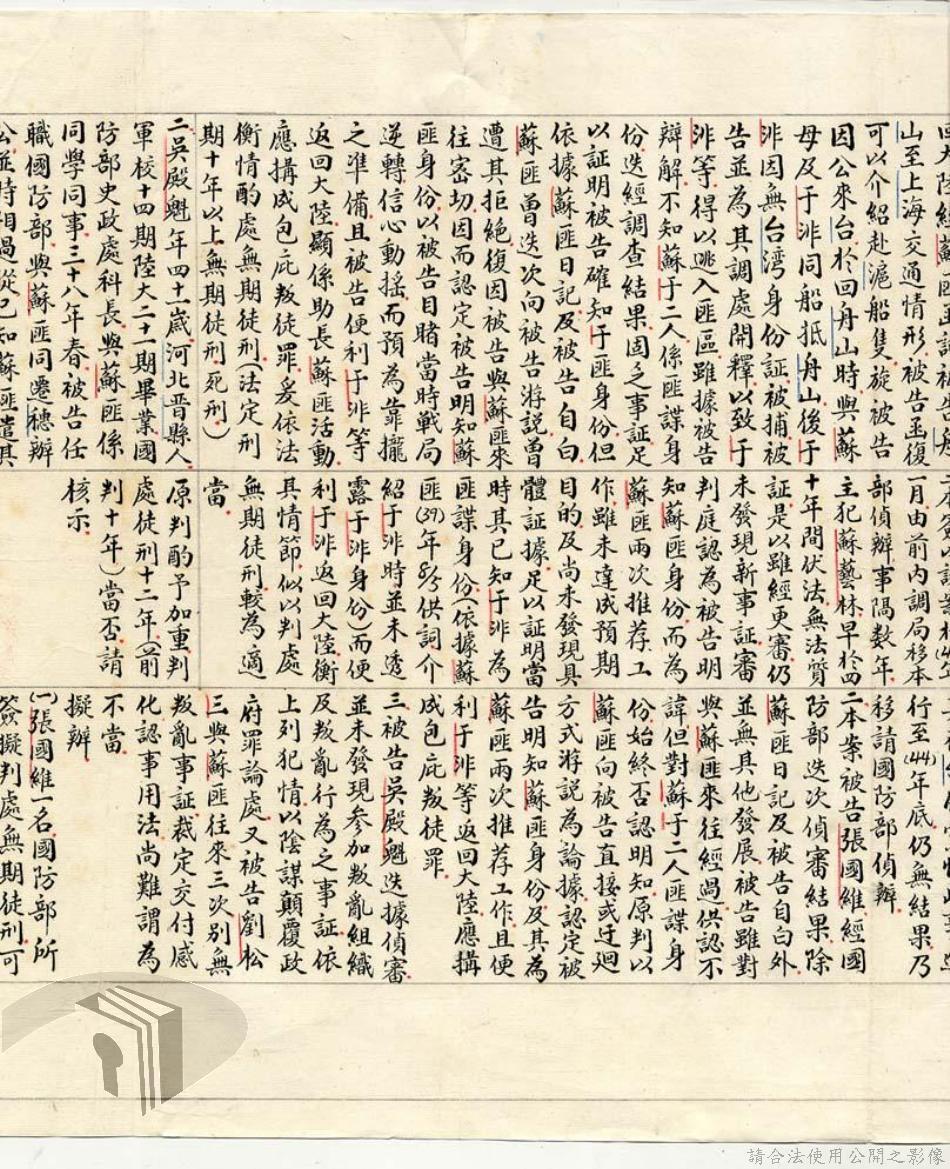 山至上海交通情形被告函復
可以介紹赴滬船隻旋被告
因公來台於回舟山時與蘇
母及于沝同船抵舟山後于
沝因無台灣身份証被捕被
告並為其調處開釋以致于
沝等得以逃入匪區雖據被告
辯解不知蘇于二人係匪諜身
份迭經調查結果固乏事証足
以証明被告確知于匪身份但
依據蘇匪日記及被告自白
蘇匪曾迭次向被告游説曾
遭其拒絕復因被告與蘇匪來
往密切因而認定被告明知蘇
匪身份以被告目睹當時戰局
逆轉信心動搖而預為靠攏
之準備且被告便利于沝等
返回大陸顯係助長蘇匪活動
應搆成包庇叛徒罪爰依法
衡情酌處無期徒刑(法定刑
期十年以上無期徒刑死刑)
二吳殿魁年四十一歲河北晉縣人
軍校十四期陸大二十一期畢業國
防部史政處科長與蘇匪係
同學同事三十八年春被告任
職國防部與蘇匪同遷穗辦
公並時相過從已知蘇匪遣其
一月由前內調局移本
部偵辦事隔數年
主犯蘇藝林早於四
十年間伏法無法質
証是以雖經更審仍
未發現新事証審
判庭認為被告明
知蘇匪身份而為
蘇匪兩次推荐工
作雖未達成預期
目的及尚未發現具
體証據足以証明當
時其已知于沝為
匪諜身份(依據蘇
匪(39)年8/5供詞介
紹于沝時並未透
露于沝身份)而便
利于沝返回大陸衡
其情節似以判處
無期徒刑較為適
當
原判酌予加重判
處徒刑十二年(前
判十年)當否請
核示
行至(44)年底仍無結果乃
移請國防部偵辦
二本案被告張國維經國
防部迭次偵審結果除
蘇匪日記及被告自白外
並無其他發展被告雖對
與蘇匪來往經過供認不
諱但對蘇于二人匪諜身
份始終否認明知原判以
蘇匪向被告直接或迂迴
方式游説為論據認定被
告明知蘇匪身份及其為
蘇匪兩次推荐工作且便
利于沝等返回大陸應搆
成包庇叛徒罪
三被告吳殿魁迭據偵審
並未發現參加叛亂組織
及叛亂行為之事証依
上列犯情以陰謀顛覆政
府罪論處又被告劉松
三與蘇匪往來三次別無
叛亂事証裁定交付感
化認事用法尚難謂為
不當
擬辦
(一)張國維一名國防部所
簽擬判處無期徒刑可
請合法使用公開之影像